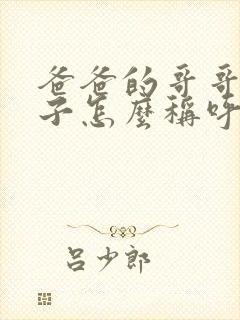 爸爸的哥哥
子怎麼稱呼
呂少郎